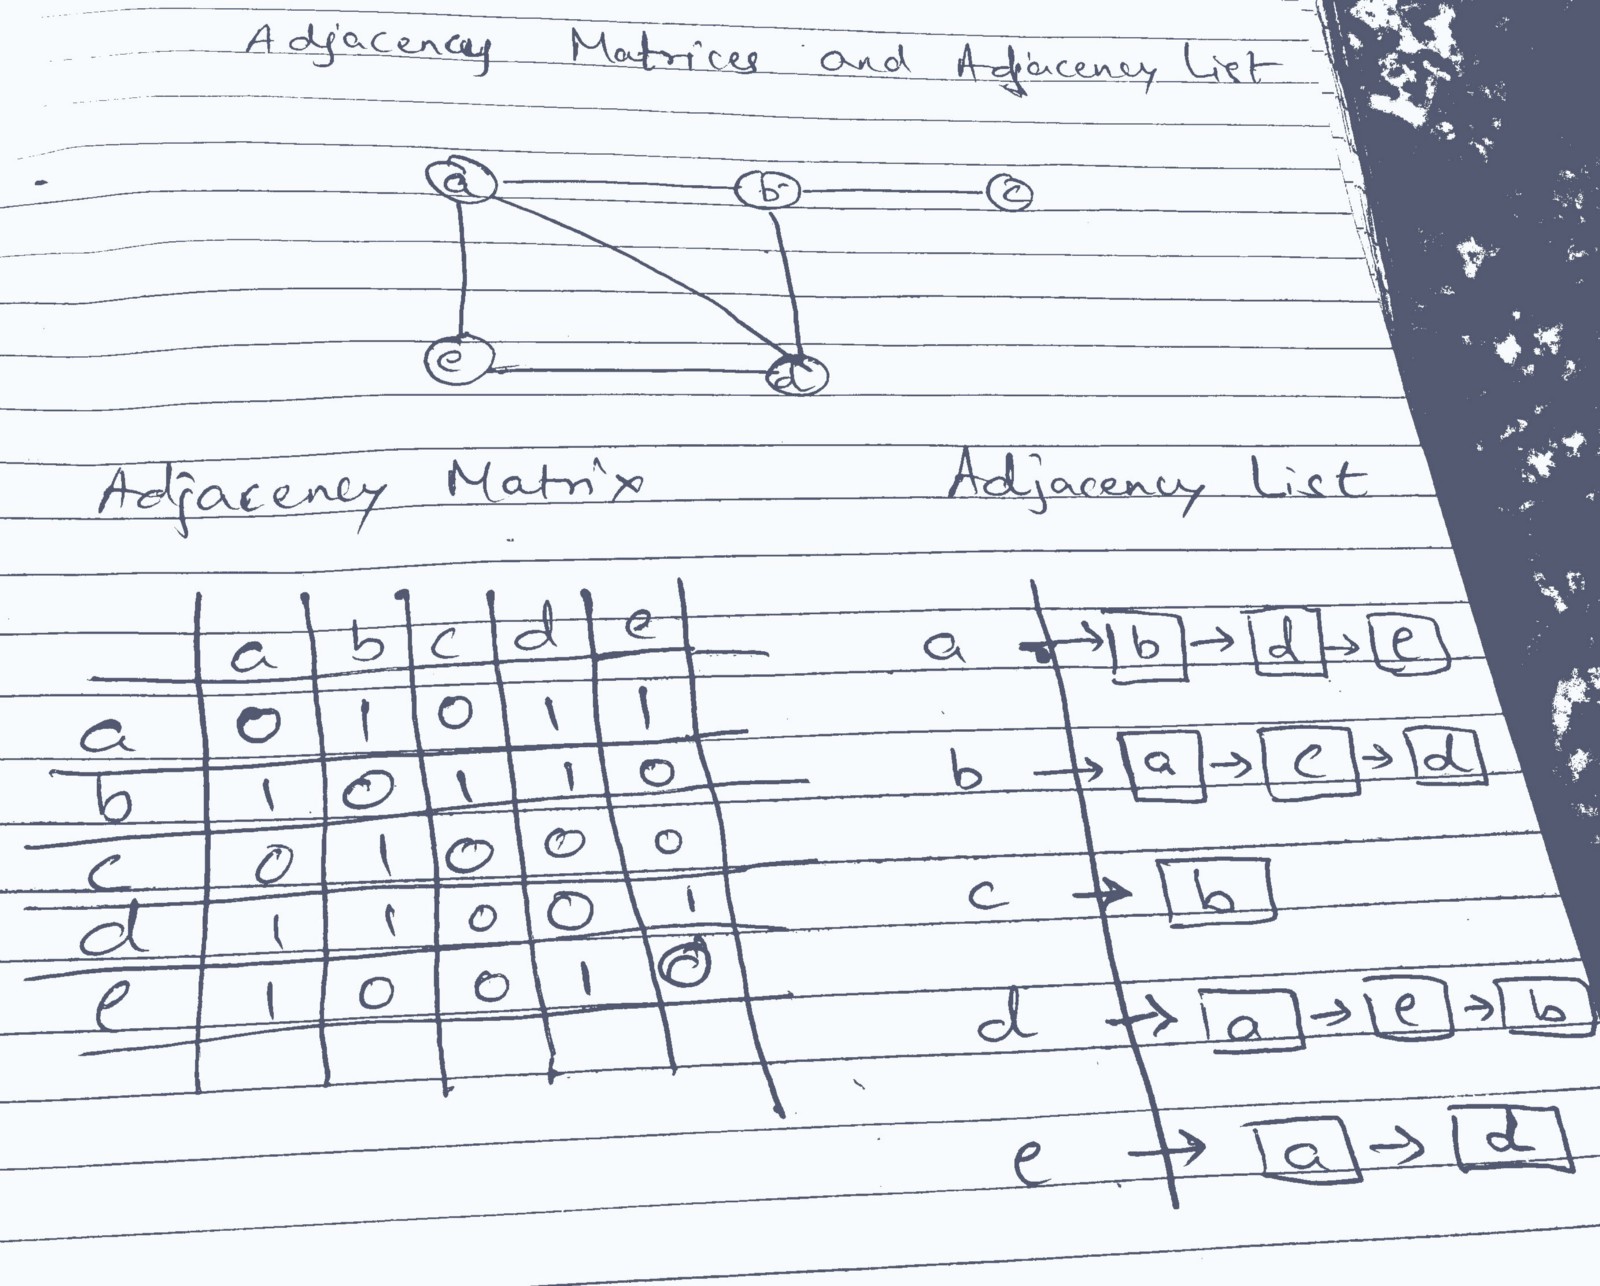 Adjacency Matrices and Adjacency List
a b c
e d
Adjacency Matrix Adjacency List
a b c d e
a 0 1 0 1 1
b 1 0 1 1 0
c 0 1 0 0 0
d 1 1 0 0 1
e 1 0 0 1 0
a → b → d → e
b → a → c → d
c → b
d → a → e → b
e → a → d